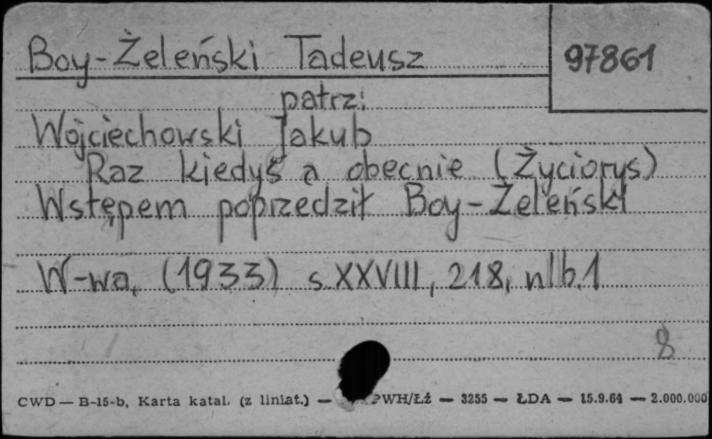 Boy-Żeleński Tadeusz
97861
patrz:
Wojciechowski Jakub
Raz kiedyś a obecnie (Życiorys)
Wstępem poprzedził Boy-Żeleński
W-wa, (1933) s. XXVIII, 218, nlb. 1
8
CWD — B-15-b, Karta katal. (z liniat.) — PWH/Łź — 3255 — ŁDA — 15.9.64 — 2.000.000